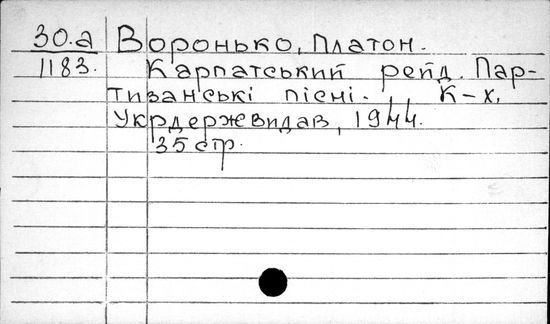 30.а Воронько, Платон.
1183. Карпатський рейд. Пар-
тизанські пісні. К-х,
Укрдержвидав, 1944.
35 стр.